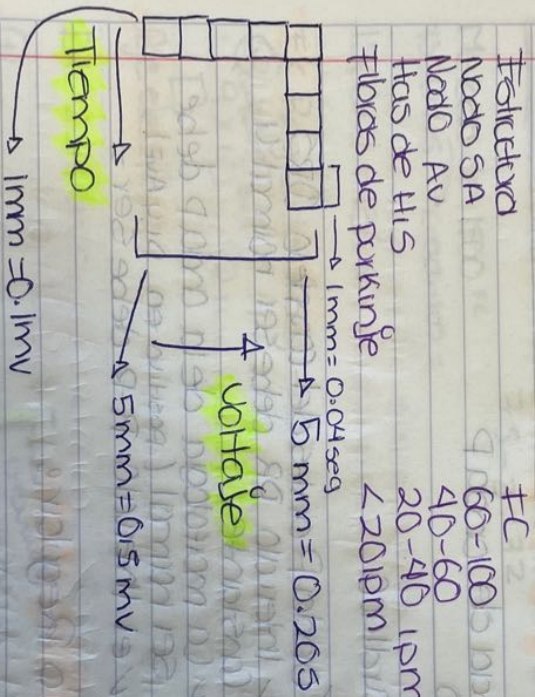 Estructura FC
Nodo SA 60-100
Nodo AV 40-60
Has de His 20-40 lpm
Fibras de purkinje <20lpm
1mm = 0.04 seg
5mm = 0.20s
Voltaje
5mm = 0.5mv
Tiempo
1mm = 0.1mv